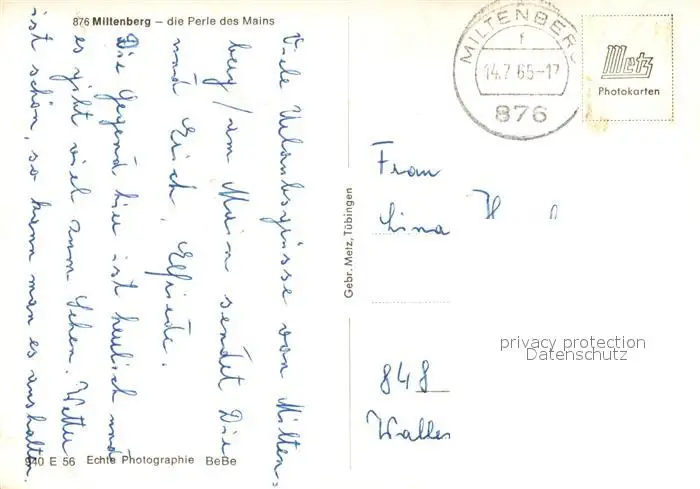 876 Miltenberg – die Perle des Mains
Viele Urlaubsgrüsse von Milten-
berg/am Main sendet Die
und Erich, Elfriede.
Die Gegend hier ist herrlich und
es gibt viel zum Sehen. Wetter
ist schön, so kann man es aushalten.
940 E 56 Echte Photographie BeBe
Gebr. Metz, Tübingen
MILTENBERG
f
14.7.65-17
876
Metz
Photokarten
Frau
Lina
848
privacy protection
Datenschutz